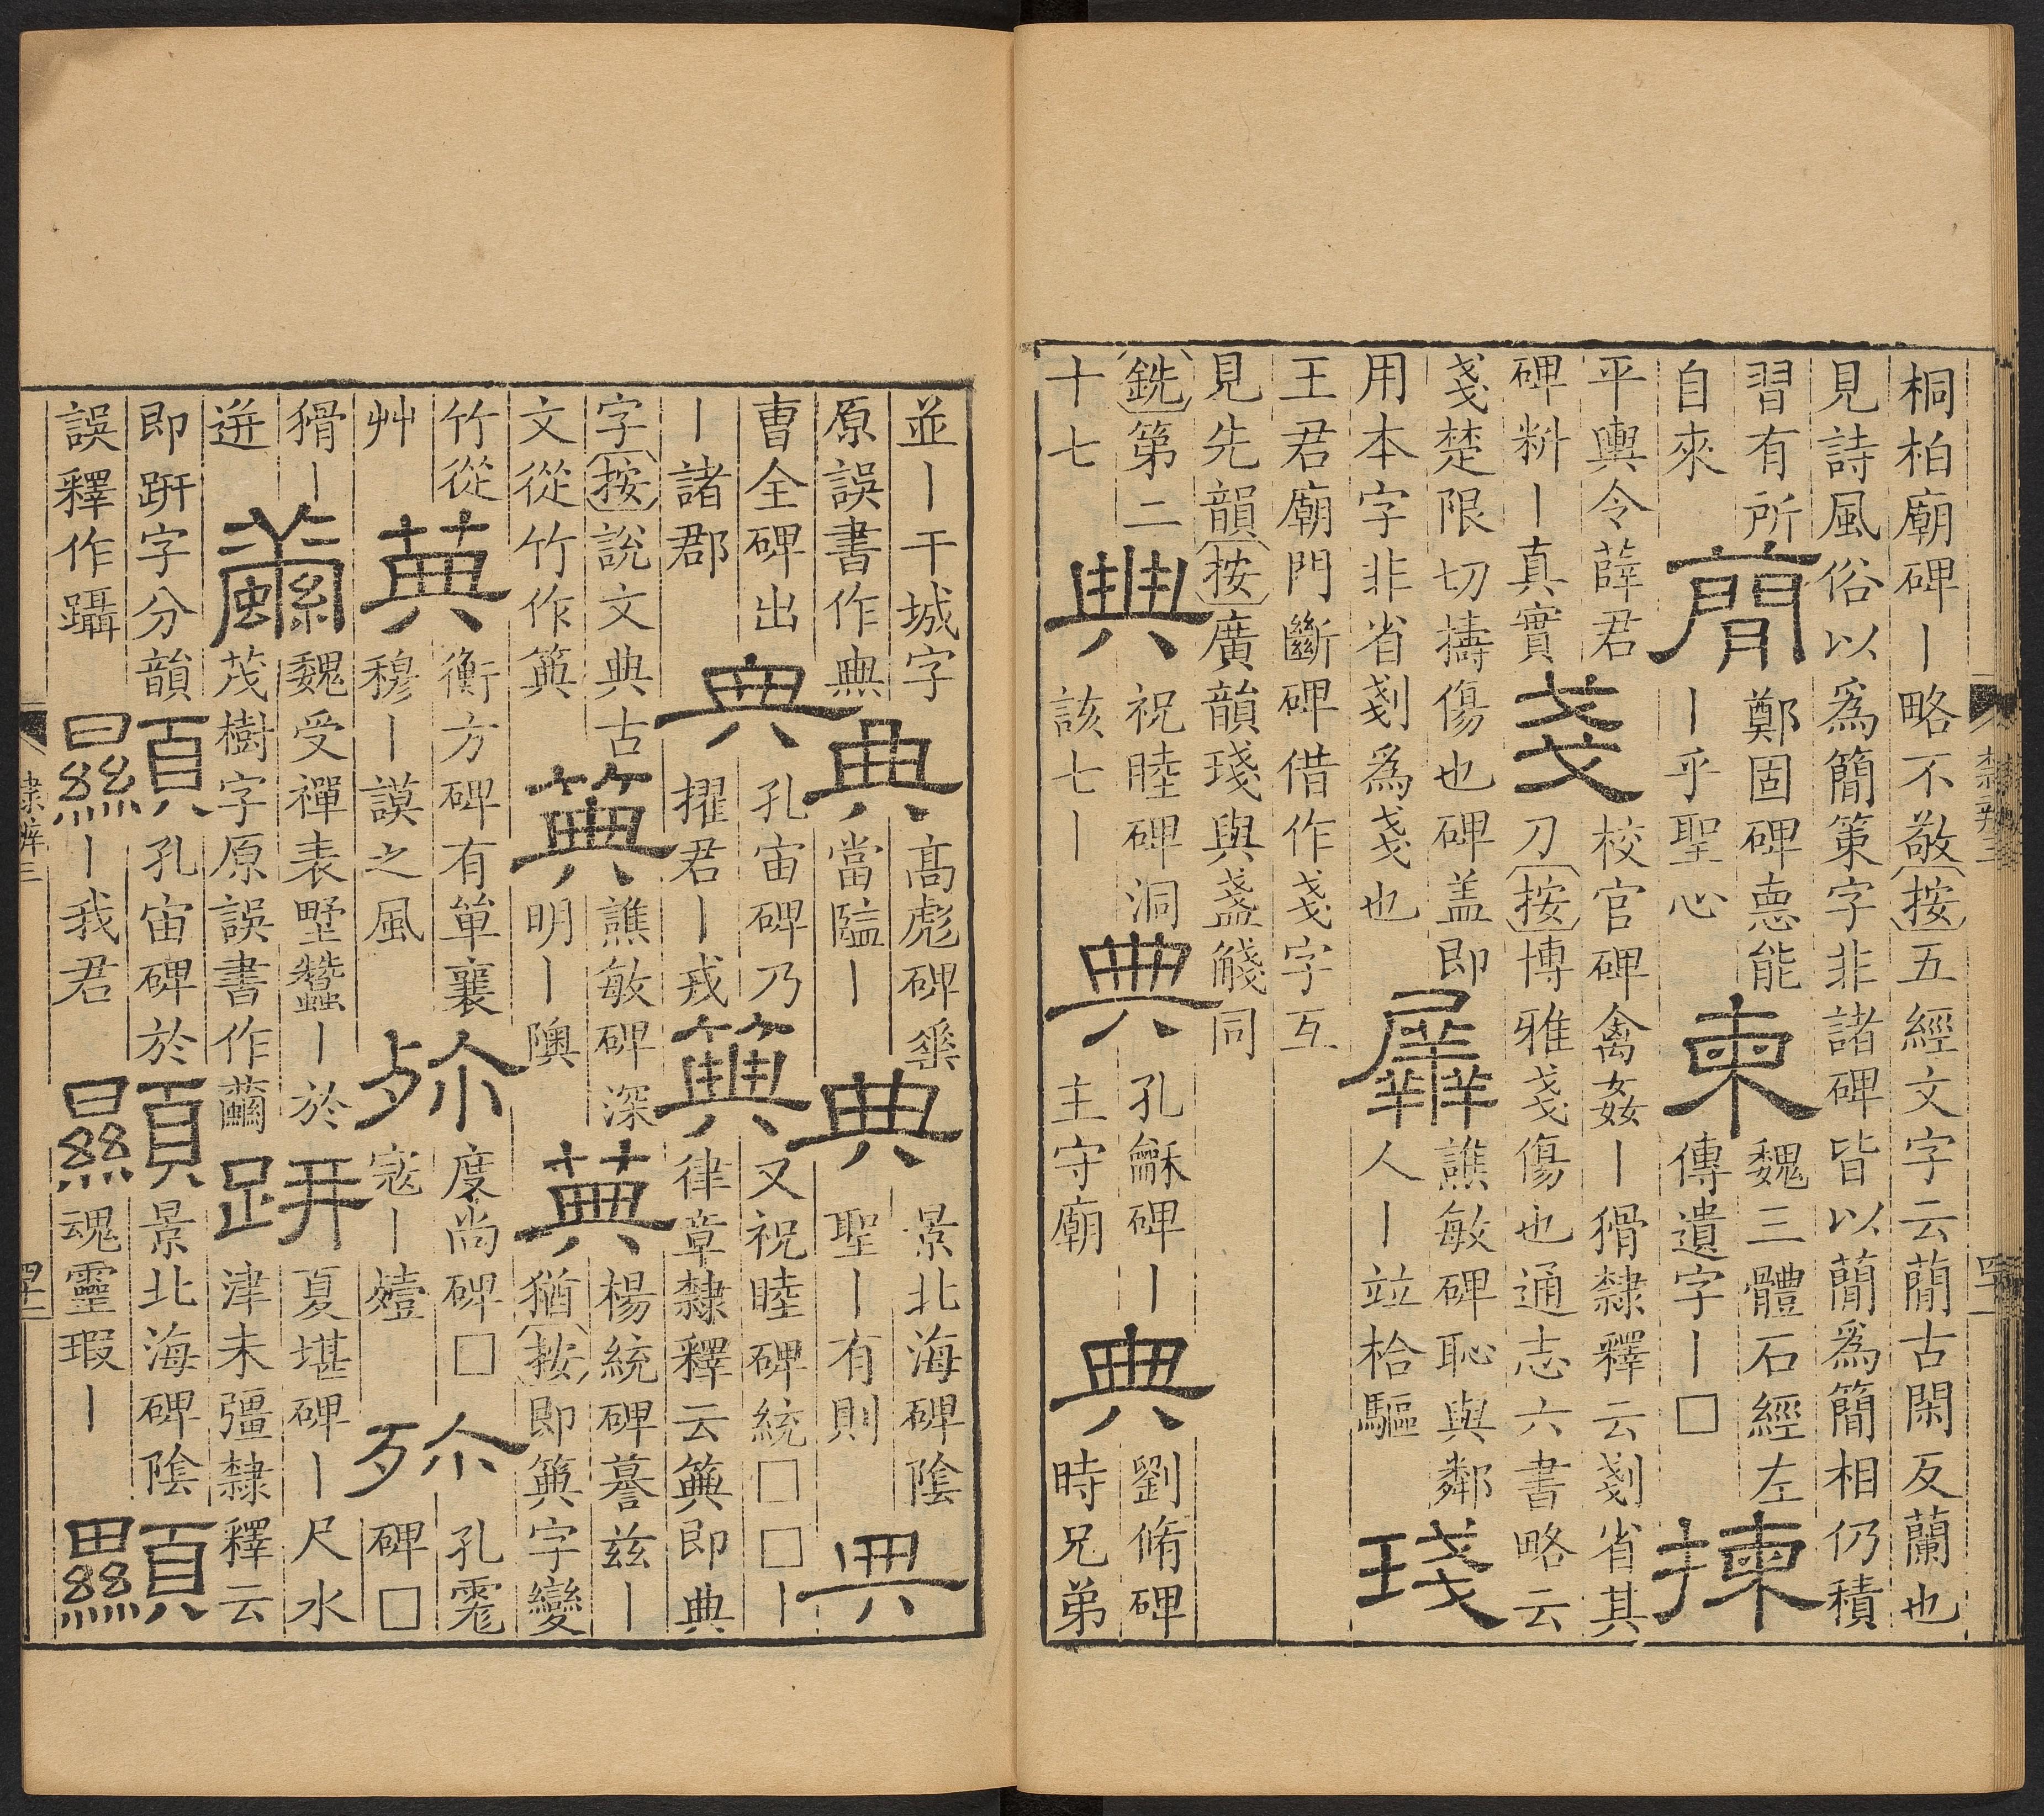 隸辨三
四十一
桐柏廟碑丨略不敬按五經文字云蕳古閑反蘭也
見詩風俗以爲簡策字非諸碑皆以蕳爲簡相仍積
習有所
自來
蕳
鄭固碑悳能
丨乎聖心
柬
魏三體石經左
傳遺字丨□
揀
平輿令薛君
碑䉼丨真實
戔
校官碑禽姦丨猾隸釋云剗省其
刀按博雅戔傷也通志六書略云
戔楚限切擣傷也碑盖即
用本字非省剗爲戔也
羼
譙敏碑恥與鄰
人丨竝枱驅
琖
王君廟門斷碑借作戔字互
見先韻按廣韻琖與盞㦮同
銑第二
十七
典
祝睦碑洞
該七丨
典
孔龢碑丨
主守廟
典
劉脩碑
時兄弟
並丨干城字
原誤書作𠔓
典
高彪碑
當隘丨
典
景北海碑陰
聖丨有則
典
曹全碑出
丨諸郡
典
孔宙碑乃
擢君丨戎
籅
又祝睦碑統□□丨
律章隸釋云籅即典
字按說文典古
文從竹作箕
箕
譙敏碑深
明丨隩
楊統碑蕚兹丨
猶按即箕字變
竹從
艸
衡方碑有單襄
穆丨謨之風
殄
度尚碑□
寇丨殪
殄
孔霓
碑□
猾丨
迸
繭
魏受禪表墅蠶丨於
茂樹字原誤書作繭
趼
夏堪碑丨尺水
津未彊隸釋云
即趼字分韻
誤釋作躡
顯
孔宙碑於
丨我君
顯
景北海碑陰
魂靈瑕丨
顯
隸辨三
四十二